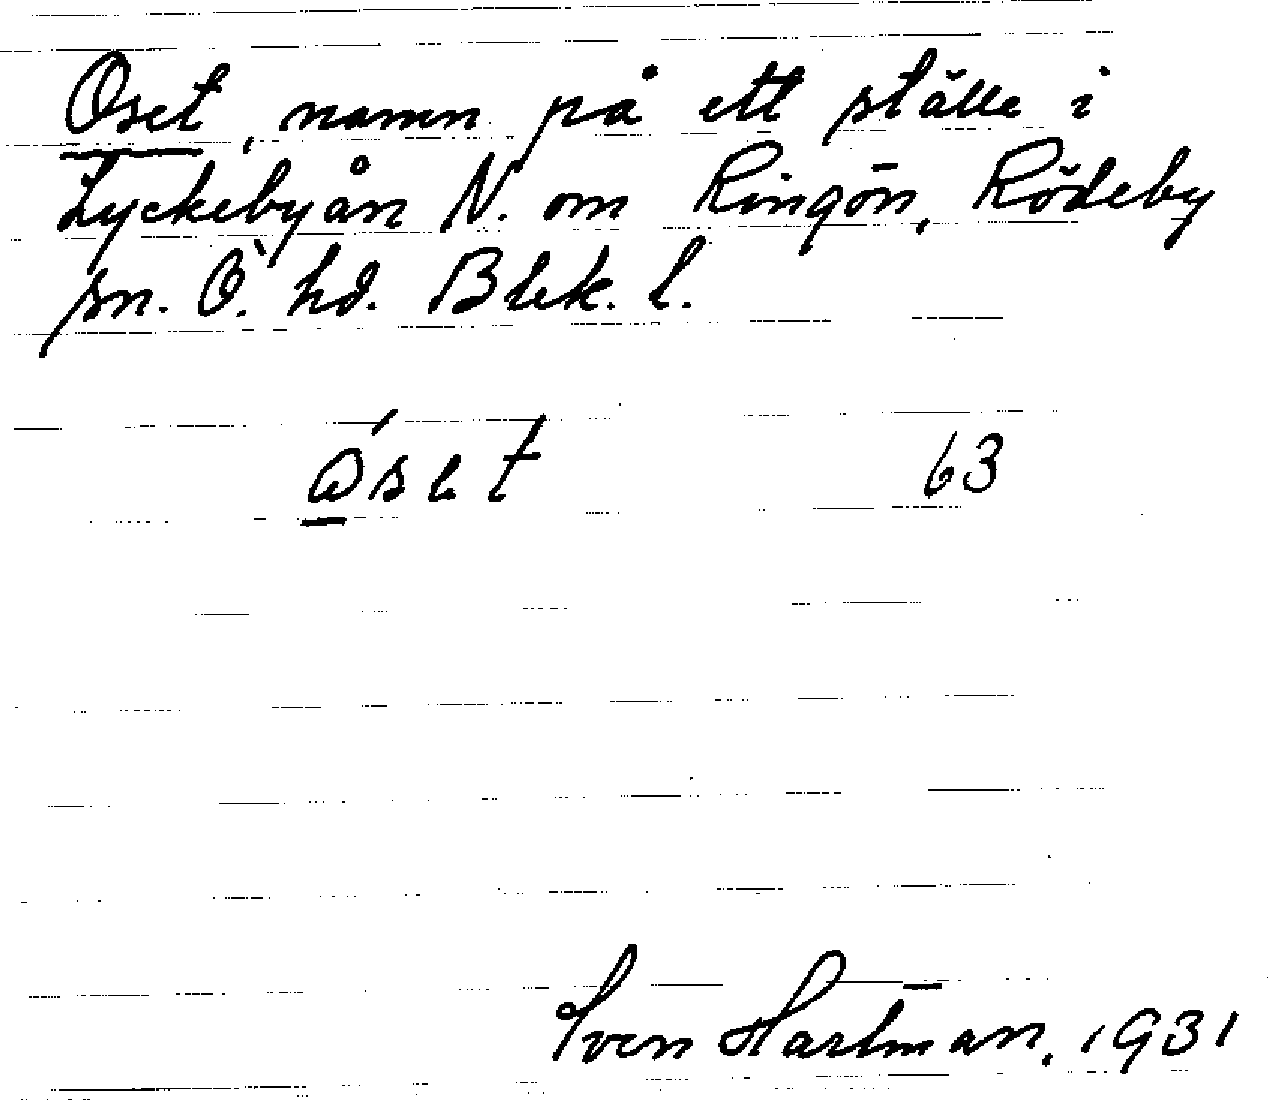 Oset, namn på ett ställe i
Lyckebyån N. om Ringön, Rödeby
sn. Ö. hd. Blek. l.
63
Sven Hartman. 1931